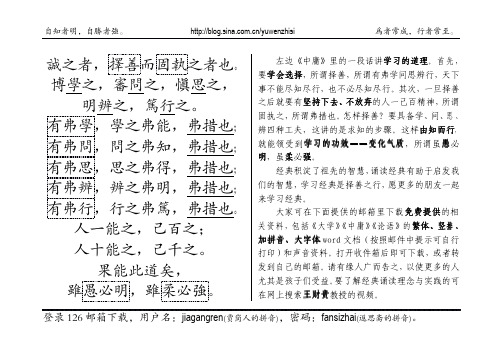 自知者明，自勝者強。 http://blog.sina.com.cn/yuwenzhisi 爲者常成，行者常至。
誠之者，擇善而固執之者也。
博學之，審問之，慎思之，
明辨之，篤行之。
有弗學，學之弗能，弗措也；
有弗問，問之弗知，弗措也；
有弗思，思之弗得，弗措也；
有弗辨，辨之弗明，弗措也；
有弗行，行之弗篤，弗措也。
人一能之，己百之；
人十能之，己千之。
果能此道矣，
雖愚必明，雖柔必強。
左边《中庸》里的一段话讲学习的道理。首先，
要学会选择，所谓择善，所谓有弗学问思辨行，天下
事不能尽知尽行，也不必尽知尽行。其次，一旦择善
之后就要有坚持下去、不放弃的人一己百精神，所谓
固执，所谓弗措也。怎样择善？要具备学、问、思、
辨四种工夫，这讲的是求知的步骤。这样由知而行，
就能领受到学习的功效——变化气质，所谓虽愚必
明，虽柔必强。
经典积淀了祖先的智慧，诵读经典有助于启发我
们的智慧，学习经典是择善之行，愿更多的朋友一起
来学习经典。
大家可在下面提供的邮箱里下载免费提供的相
关资料，包括《大学》《中庸》《论语》的繁体、竖排、
加拼音、大字体 word 文档（按照邮件中提示可自行
打印）和声音资料。打开收件箱后即可下载，或者转
发到自己的邮箱。请有缘人广而告之，以使更多的人
尤其是孩子们受益。要了解经典诵读理念与实践的可
在网上搜索王财贵教授的视频。
登录 126 邮箱下载，用户名；jiagangren(贾岗人的拼音)，密码；fansizhi(返思斋的拼音)。